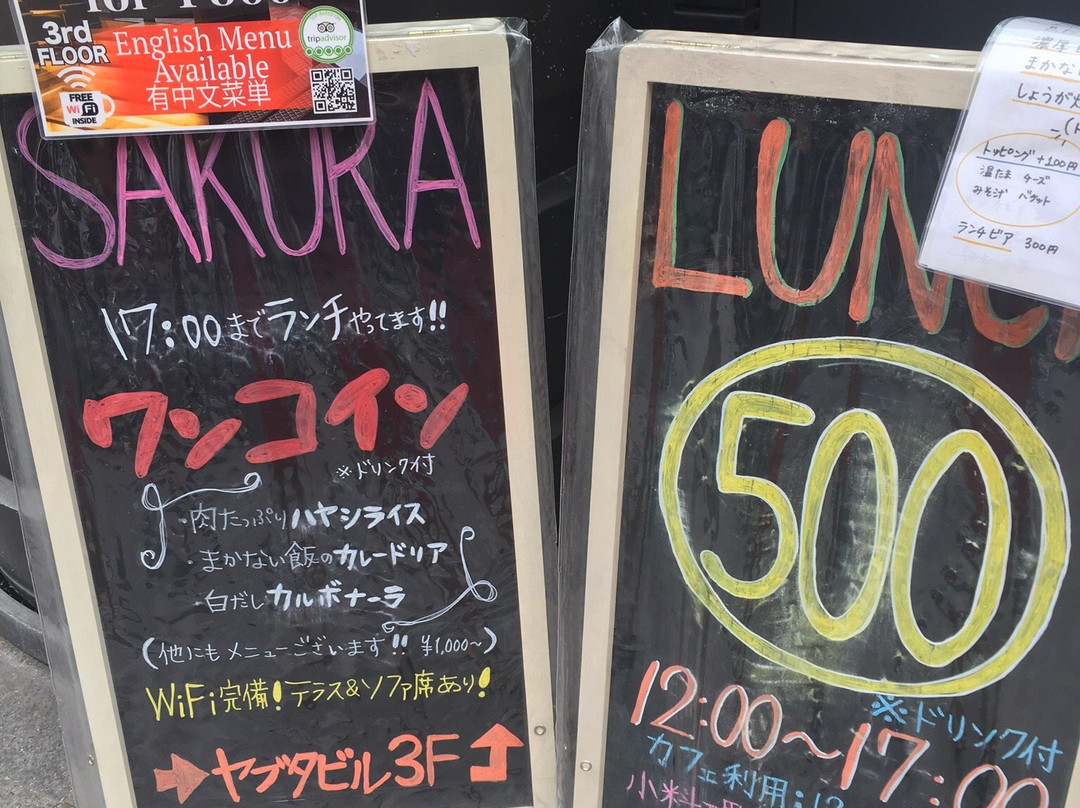 3rd
FLOOR
FREE
WiFi
INSIDE
English Menu
Available
有中文菜単
tripadvisor
SAKURA
17:00までランチやってます!!
ワンコイン
※ドリンク付
・肉たっぷりハヤシライス
・まかない飯のカレードリア
・白だしカルボナーラ
(他にもメニューございます!! ¥1,000〜)
WiFi完備!テラス&ソファ席あり!
→ヤブタビル3F
LUNC
500
※ドリンク付
12:00〜17:00
カフェ利用:12
まかな
しょうが
トッピング+100円
温たま チーズ
みそ汁 バケット
ランチビア 300円